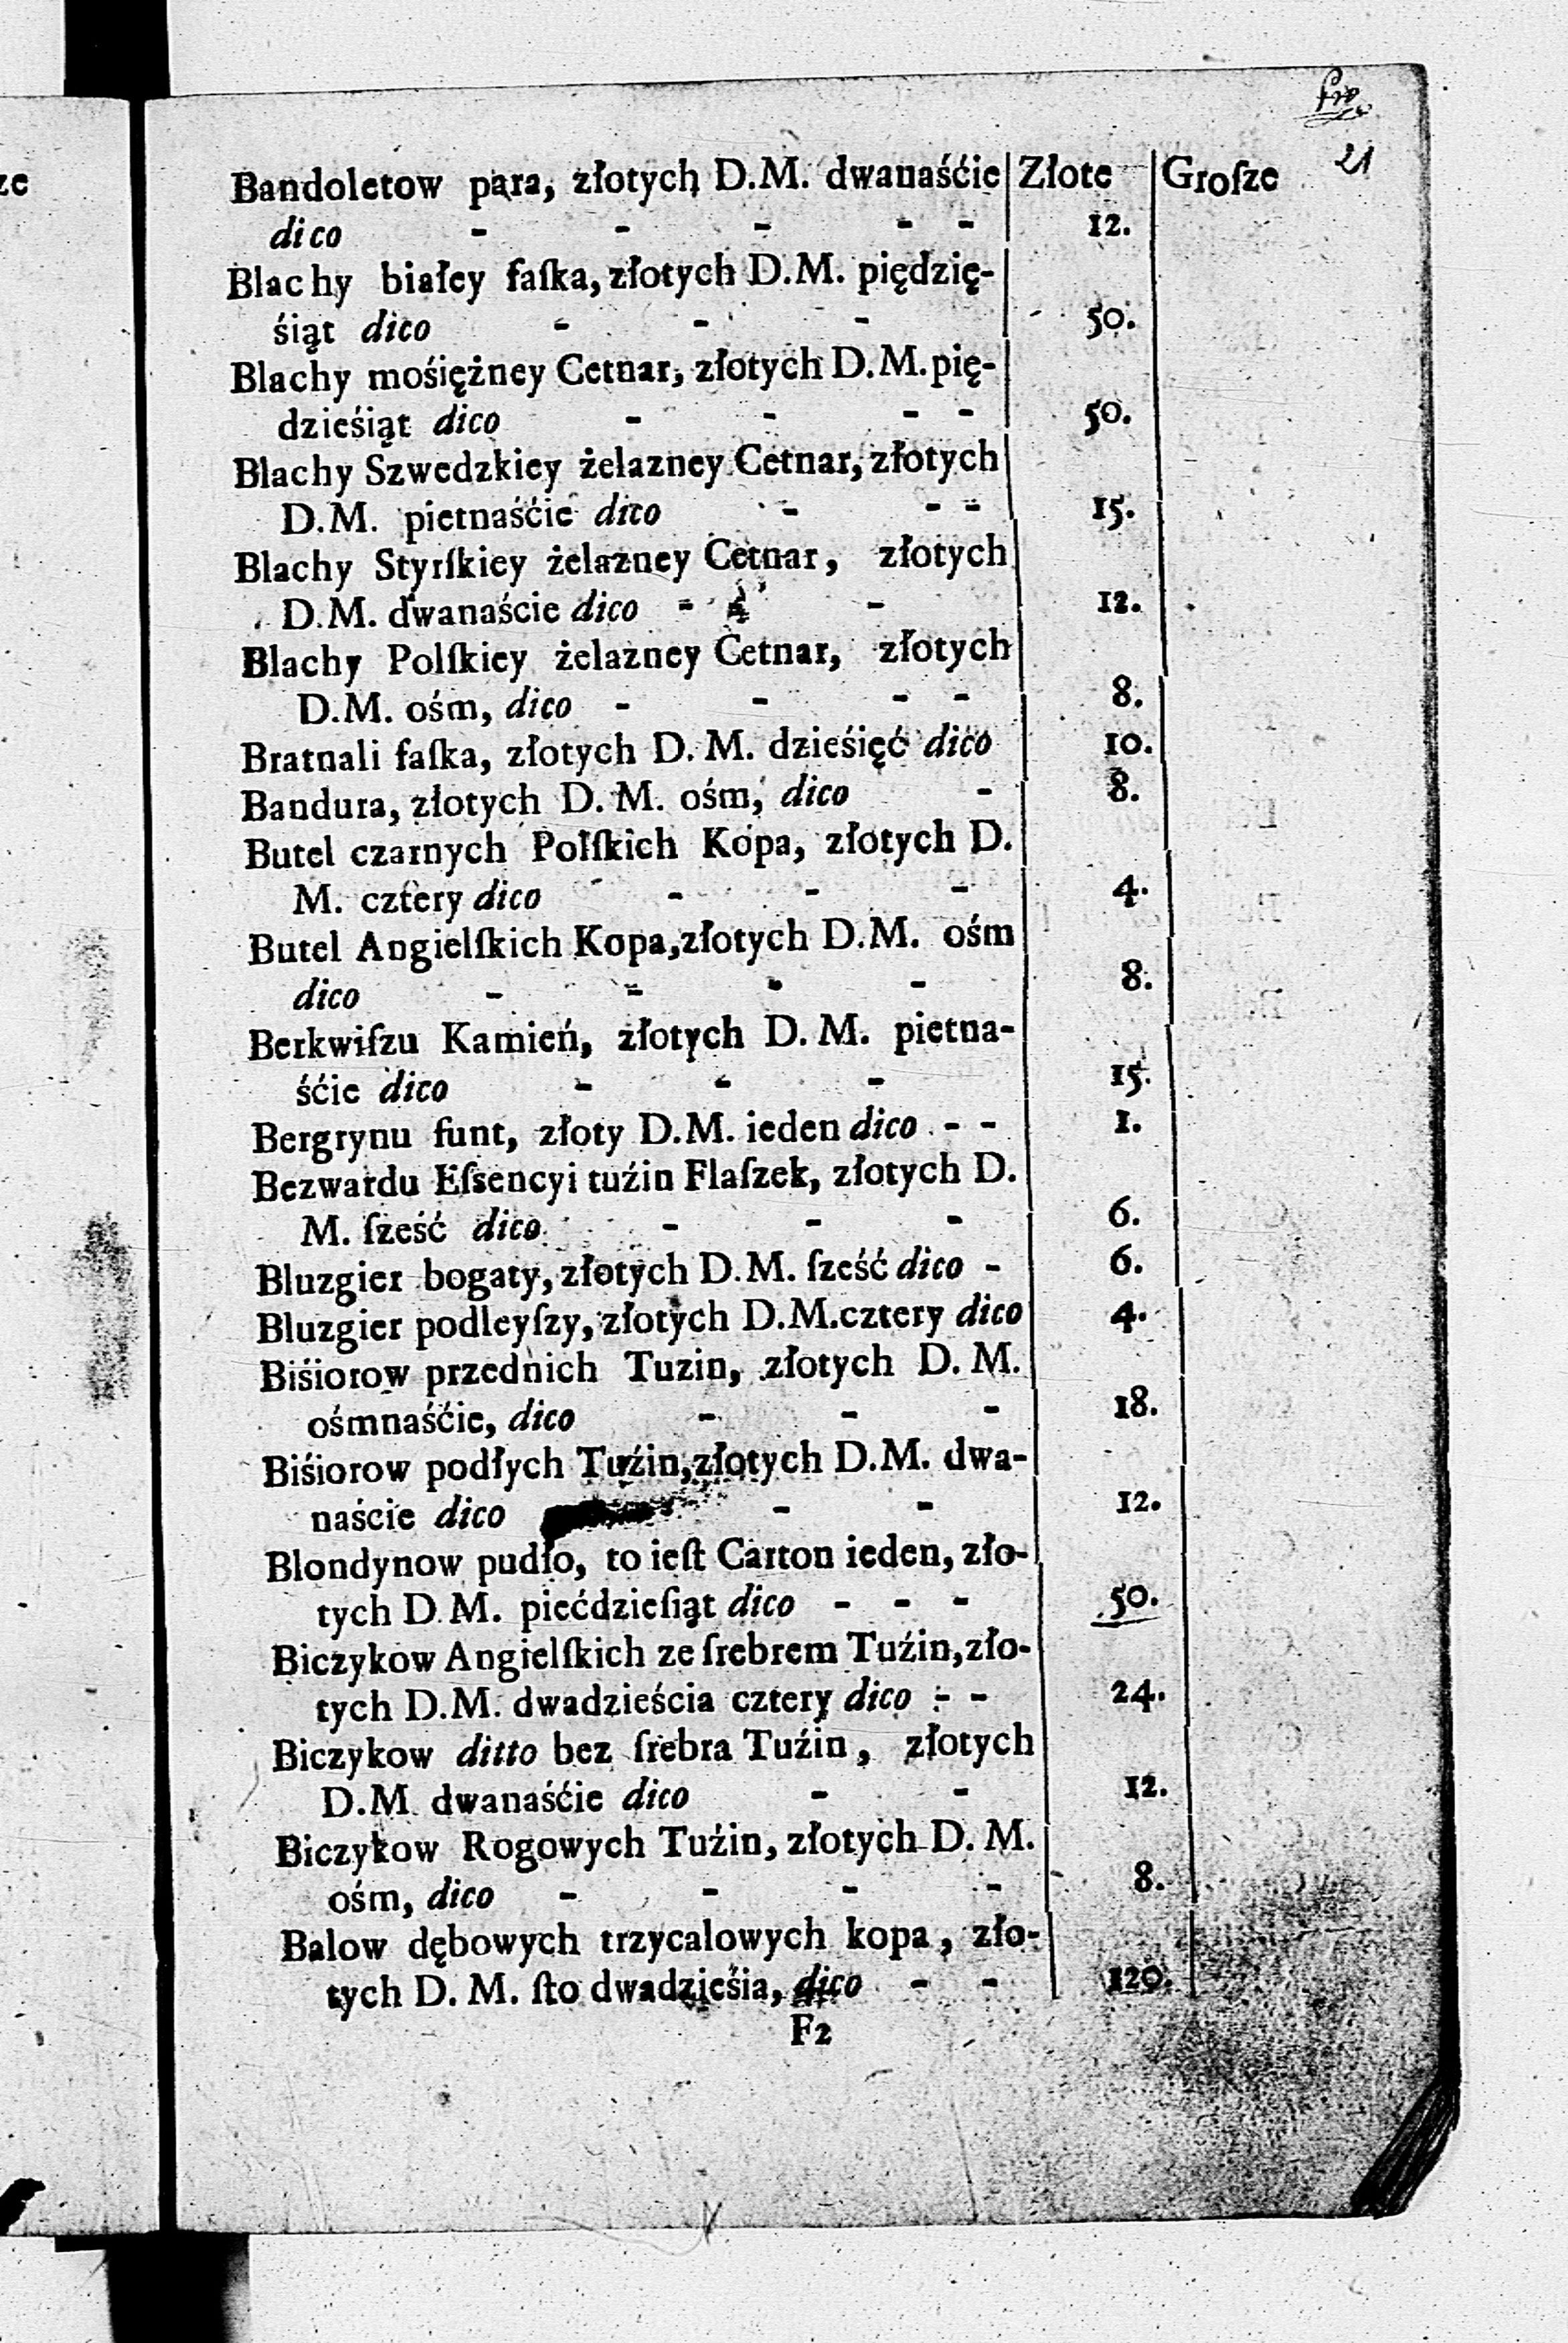 21
Bandoletow para, złotych D.M. dwanaśćie Złote Groſze
dico - - - - - 12.
Blachy białey faſka, złotych D.M. piędzię-
śiąt dico - - - 50.
Blachy mośiężney Cetnar, złotych D.M. pię-
dzieśiąt dico - - - - 50.
Blachy Szwedzkiey żelazney Cetnar, złotych
D.M. pietnaśćie dico - - - 15.
Blachy Styrſkiey żelazney Cetnar, złotych
D.M. dwanaście dico - - 12.
Blachy Polſkiey żelazney Cetnar, złotych
D.M. ośm, dico - - - - 8.
Bratnali faſka, złotych D. M. dzieśięć dico 10.
Bandura, złotych D. M. ośm, dico - 8.
Butel czarnych Polſkich Kopa, złotych D.
M. cztery dico - - - 4.
Butel Angielſkich Kopa, złotych D.M. ośm
dico - - - - 8.
Berkwiſzu Kamień, złotych D. M. pietna-
śćie dico - - - 15.
Bergrynu funt, złoty D.M. ieden dico - - 1.
Bezwardu Eſsencyi tuźin Flaſzek, złotych D.
M. ſześć dico - - - 6.
Bluzgier bogaty, złotych D.M. ſześć dico - 6.
Bluzgier podleyſzy, złotych D.M. cztery dico 4.
Biśiorow przednich Tuzin, złotych D. M.
ośmnaśćie, dico - - - 18.
Biśiorow podłych Tuźin, złotych D.M. dwa-
naście dico - - 12.
Blondynow pudło, to ieſt Carton ieden, zło-
tych D M. piećdzieſiąt dico - - - 50.
Biczykow Angielſkich ze ſrebrem Tuźin, zło-
tych D.M. dwadzieścia cztery dico - - 24.
Biczykow ditto bez ſrebra Tuźin, złotych
D.M. dwanaśćie dico - - 12.
Biczykow Rogowych Tuźin, złotych D. M.
ośm, dico - - - - 8.
Balow dębowych trzycalowych kopa, zło-
tych D. M. ſto dwadzieśia, dico - - 120.
F2